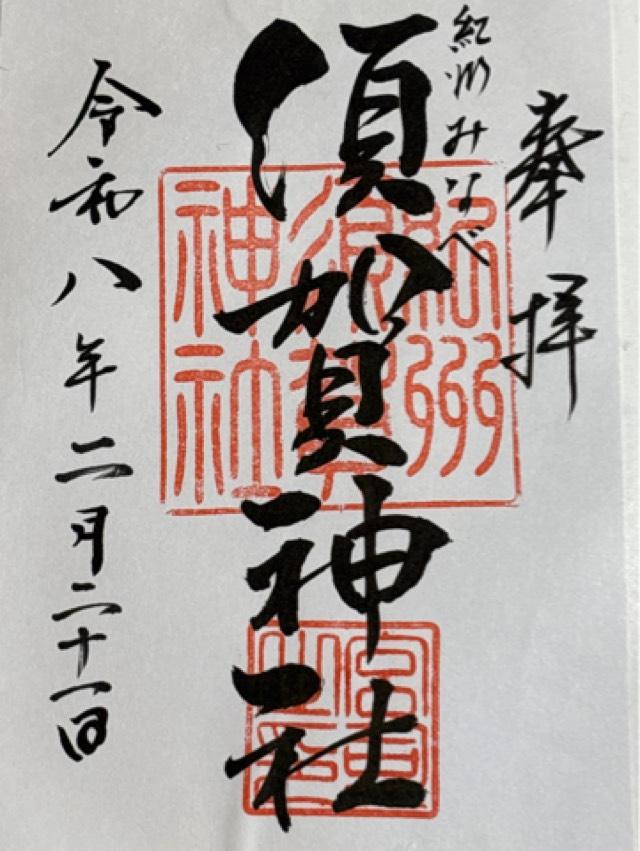 奉拝
紀州みなべ
須賀神社
令和八年二月二十一日
紀州
須賀
神社
宮司之印